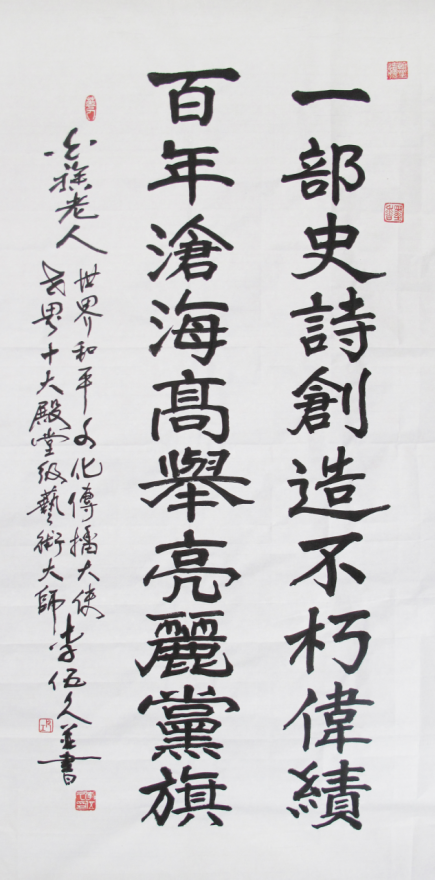 一部史詩創造不朽偉績
百年滄海高舉亮麗黨旗
老人
世界和平文化傳播大使
世界十大殿堂級藝術大師 李伍久並書